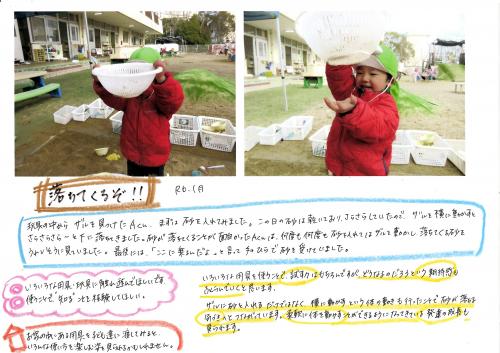 落ちてくるぞ!!
R6.1月
玩具の中から ザルを見つけたAくん。まずは 砂を入れてみました。この日の砂は 乾いており、さらさらしていたので、ザルを横に動かすと
さらさらさら〜と下に落ちてきました。砂が落ちてくることが面白かったAくんは、何度も何度も砂を入れてはザルを動かし落ちてくる砂を
うれしそうに見ていました。最後には、「ここに集まんだよ。」と言って手のひらで砂を受けていました。
いろいろな用具・玩具に触れ遊んでほしいです。
使うことで、"知る"ことを体験してほしい。
お家の中にある用具を子ども達に渡してみると、
いろいろな使い方を楽しむ姿を見られるかもしれません。
いろいろな用具を使うことで、試す力はもちろんですが、どうなるのだろうという期待感も
ふくらんでいくと思います。
ザルに砂を入れるだけではなく 横に動かすという体の動きも行ったことで砂が落ちる
面白さへとつながっています。柔軟に体を動かすことができるようになってきている 発達の成長も
見られます。